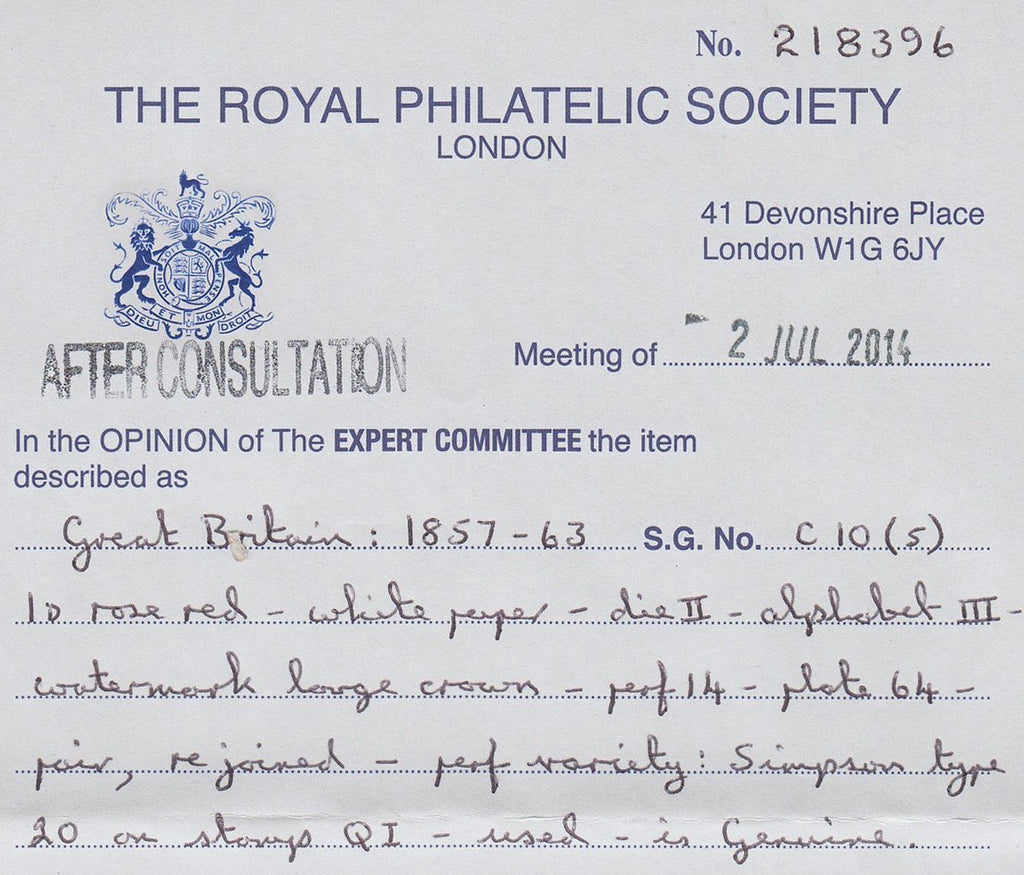 No. 218396
THE ROYAL PHILATELIC SOCIETY
LONDON
41 Devonshire Place
London W1G 6JY
HONI SOIT MAL PENSE
DIEU ET MON DROIT
AFTER CONSULTATION
Meeting of - 2 JUL 2014
In the OPINION of The EXPERT COMMITTEE the item
described as
Great Britain: 1857-63 S.G. No. C10(5)
1D rose red - white paper - die II - alphabet III -
watermark large crown - perf 14 - plate 64 -
pair, rejoined - perf variety: Simpson type
20 on stamps QI - used - is Genuine.